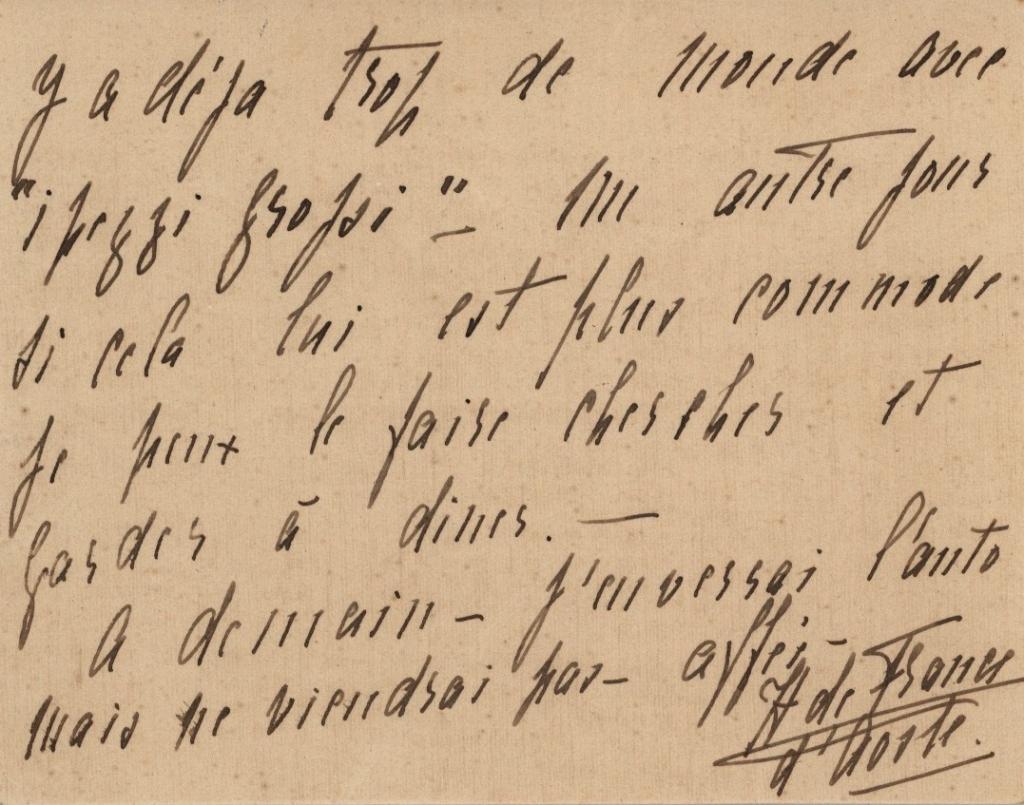 y a déja trop de monde avec
"i pezzi grossi" – Un autre jour
si cela lui est plus commode
je peux le faire chercher et
garder à diner. —
A demain – j'enverrai l'auto
mais ne viendrai pas – affei –
H de France
d'Aoste.